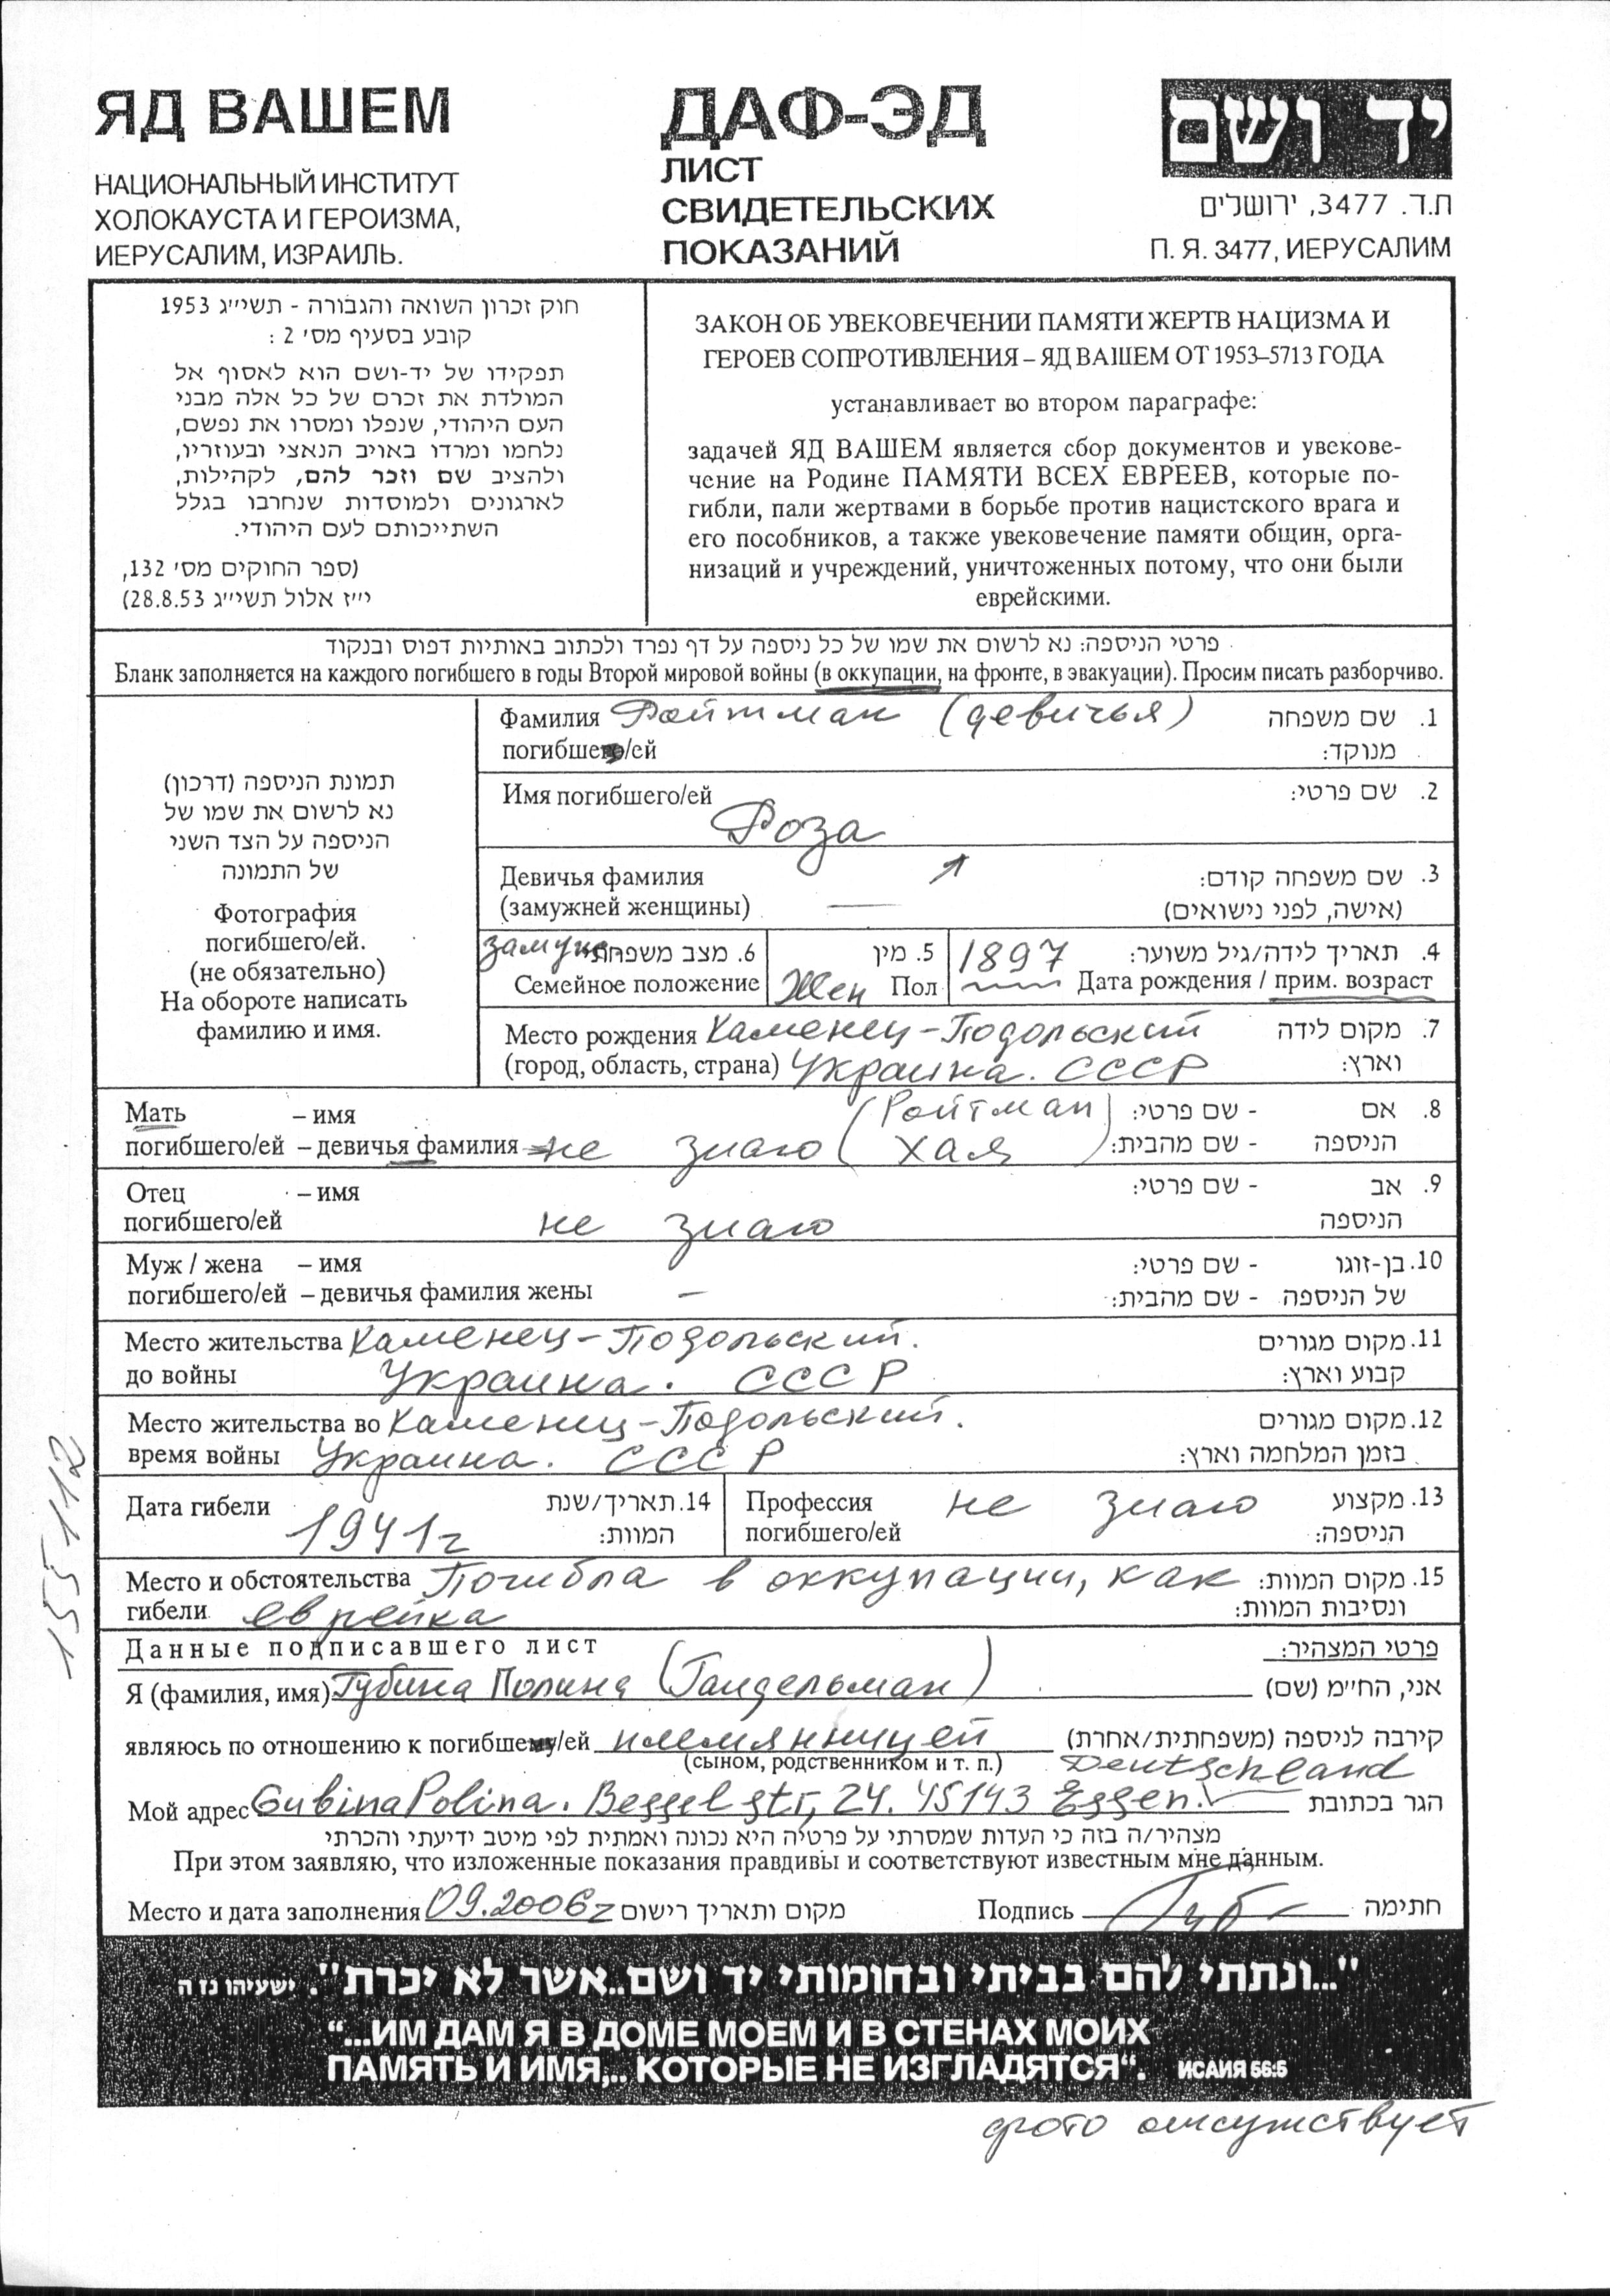 ЯД ВАШЕМ
НАЦИОНАЛЬНЫЙ ИНСТИТУТ
ХОЛОКАУСТА И ГЕРОИЗМА,
ИЕРУСАЛИМ, ИЗРАИЛЬ.
ДАФ-ЭД
ЛИСТ
СВИДЕТЕЛЬСКИХ
ПОКАЗАНИЙ
יד ושם
ת.ד. 3477, ירושלים
П. Я. 3477, ИЕРУСАЛИМ
חוק זכרון השואה והגבורה - תשי״ג 1953
קובע בסעיף מס׳ 2 :
תפקידו של יד-ושם הוא לאסוף אל
המולדת את זכרם של כל אלה מבני
העם היהודי, שנפלו ומסרו את נפשם,
נלחמו ומרדו באויב הנאצי ובעוזריו,
ולהציב שם וזכר להם, לקהילות,
לארגונים ולמוסדות שנחרבו בגלל
השתייכותם לעם היהודי.
(ספר החוקים מס׳ 132,
י״ז אלול תשי״ג 28.8.53)
ЗАКОН ОБ УВЕКОВЕЧЕНИИ ПАМЯТИ ЖЕРТВ НАЦИЗМА И
ГЕРОЕВ СОПРОТИВЛЕНИЯ – ЯД ВАШЕМ ОТ 1953–5713 ГОДА
устанавливает во втором параграфе:
задачей ЯД ВАШЕМ является сбор документов и увекове-
чение на Родине ПАМЯТИ ВСЕХ ЕВРЕЕВ, которые по-
гибли, пали жертвами в борьбе против нацистского врага и
его пособников, а также увековечение памяти общин, орга-
низаций и учреждений, уничтоженных потому, что они были
еврейскими.
פרטי הניספה: נא לרשום את שמו של כל ניספה על דף נפרד ולכתוב באותיות דפוס ובנקוד
Бланк заполняется на каждого погибшего в годы Второй мировой войны (в оккупации, на фронте, в эвакуации). Просим писать разборчиво.
תמונת הניספה (דרכון)
נא לרשום את שמו של
הניספה על הצד השני
של התמונה
Фотография
погибшего/ей.
(не обязательно)
На обороте написать
фамилию и имя.
Фамилия Ройтман (девичья) 1. שם משפחה
погибшего/ей מנוקד:
Имя погибшего/ей 2. שם פרטי:
Роза
Девичья фамилия 3. שם משפחה קודם:
(замужней женщины) — (אישה, לפני נישואים)
замуж. 6. מצב משפחתי 5. מין 1897 4. תאריך לידה/גיל משוער:
Семейное положение Жен Пол Дата рождения / прим. возраст
Место рождения Каменец-Подольский 7. מקום לידה
(город, область, страна) Украина. СССР וארץ:
Мать – имя (Ройтман 8. אם - שם פרטי:
погибшего/ей – девичья фамилия не знаю Хая) הניספה - שם מהבית:
Отец – имя 9. אב - שם פרטי:
погибшего/ей не знаю הניספה
Муж / жена – имя 10. בן-זוגו - שם פרטי:
погибшего/ей – девичья фамилия жены – של הניספה - שם מהבית:
Место жительства Каменец-Подольский. 11. מקום מגורים
до войны Украина. СССР קבוע וארץ:
Место жительства во Каменец-Подольский. 12. מקום מגורים
время войны Украина. СССР בזמן המלחמה וארץ:
Дата гибели 1941г 14. תאריך/שנת המוות:
Профессия не знаю 13. מקצוע
погибшего/ей הניספה:
Место и обстоятельства Погибла в оккупации, как 15. מקום המוות:
гибели еврейка ונסיבות המוות:
Данные подписавшего лист פרטי המצהיר:
Я (фамилия, имя) Губина Полина (Гандельман) אני, הח״מ (שם)
являюсь по отношению к погибшему/ей племянницей קירבה לניספה (משפחתית/אחרת)
(сыном, родственником и т. п.) Deutschland
Мой адрес Gubina Polina. Bessel str, 24. 45143 Essen. הגר בכתובת
מצהיר/ה בזה כי העדות שמסרתי על פרטיה היא נכונה ואמתית לפי מיטב ידיעתי והכרתי
При этом заявляю, что изложенные показания правдивы и соответствуют известным мне данным.
Место и дата заполнения 09.2006г מקום ותאריך רישום Подпись Губ חתימה
"...ונתתי להם בביתי ובחומותי יד ושם..אשר לא יכרת". ישעיהו נו ה
“...ИМ ДАМ Я В ДОМЕ МОЕМ И В СТЕНАХ МОИХ
ПАМЯТЬ И ИМЯ,.. КОТОРЫЕ НЕ ИЗГЛАДЯТСЯ“. ИСАИЯ 56:5
фото отсутствует
155112